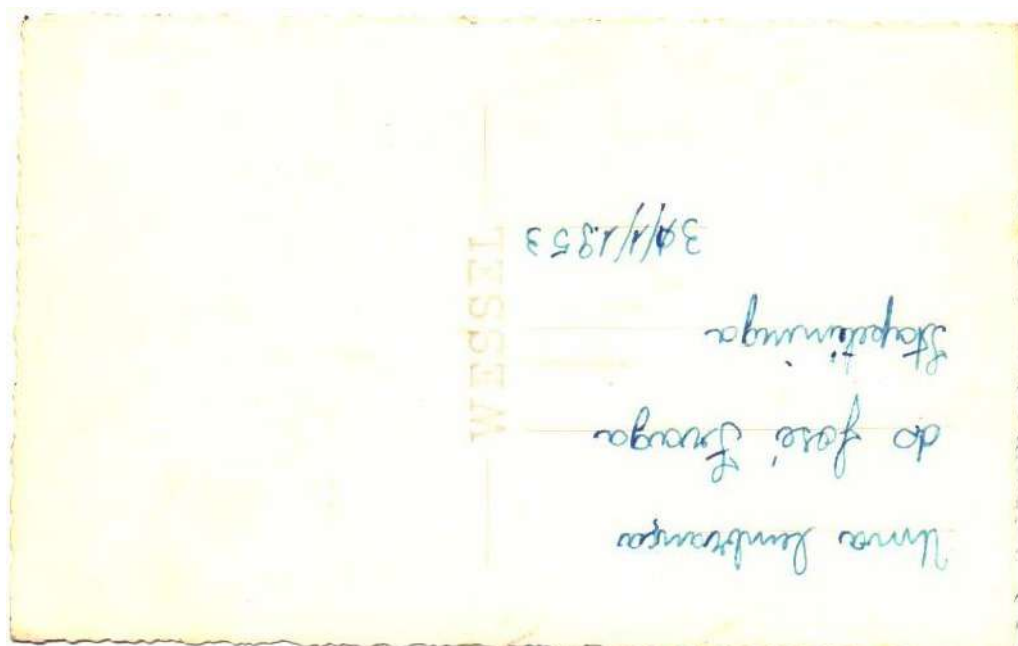 Uma lembrança
do José Fraga
Itapetininga
30/1/1953
WESSEL